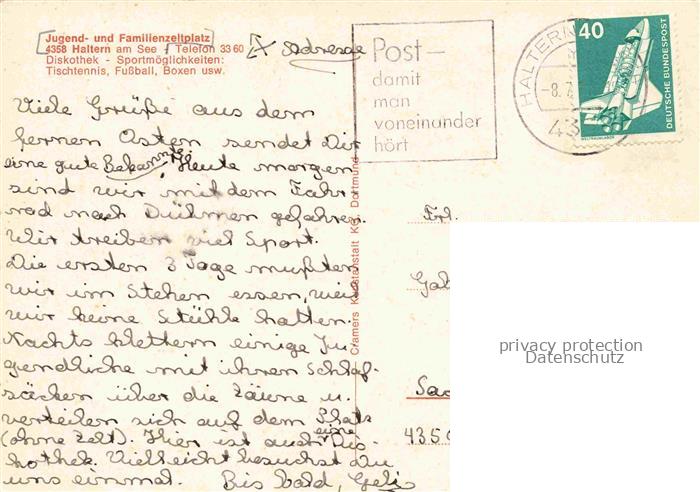 Jugend- und Familienzeltplatz
4358 Haltern am See - Telefon 33 60
Diskothek - Sportmöglichkeiten:
Tischtennis, Fußball, Boxen usw.
Adresse
Post -
damit
man
voneinander
hört
HALTERN
-8.
40
DEUTSCHE BUNDESPOST
WELTRAUMLABOR
Viele Grüße aus dem
fernen Osten sendet Dir
eine gute Bekannte. Heute morgen
sind wir mit dem Fahr-
rad nach Dülmen gefahren.
Wir treiben viel Sport.
Die ersten 3 Tage mußten
wir im Stehen essen, weil
wir keine Stühle hatten.
Nachts klettern einige Ju-
gendliche mit ihren Schlaf-
säcken über die Zäune u.
verteilen sich auf dem Platz
(ohne Zelt). Hier ist auch eine Dis-
kothek. Vielleicht besuchst Du
uns einmal. Bis bald,
Cramers Kunstanstalt KG, Dortmund
Frl.
435
privacy protection
Datenschutz